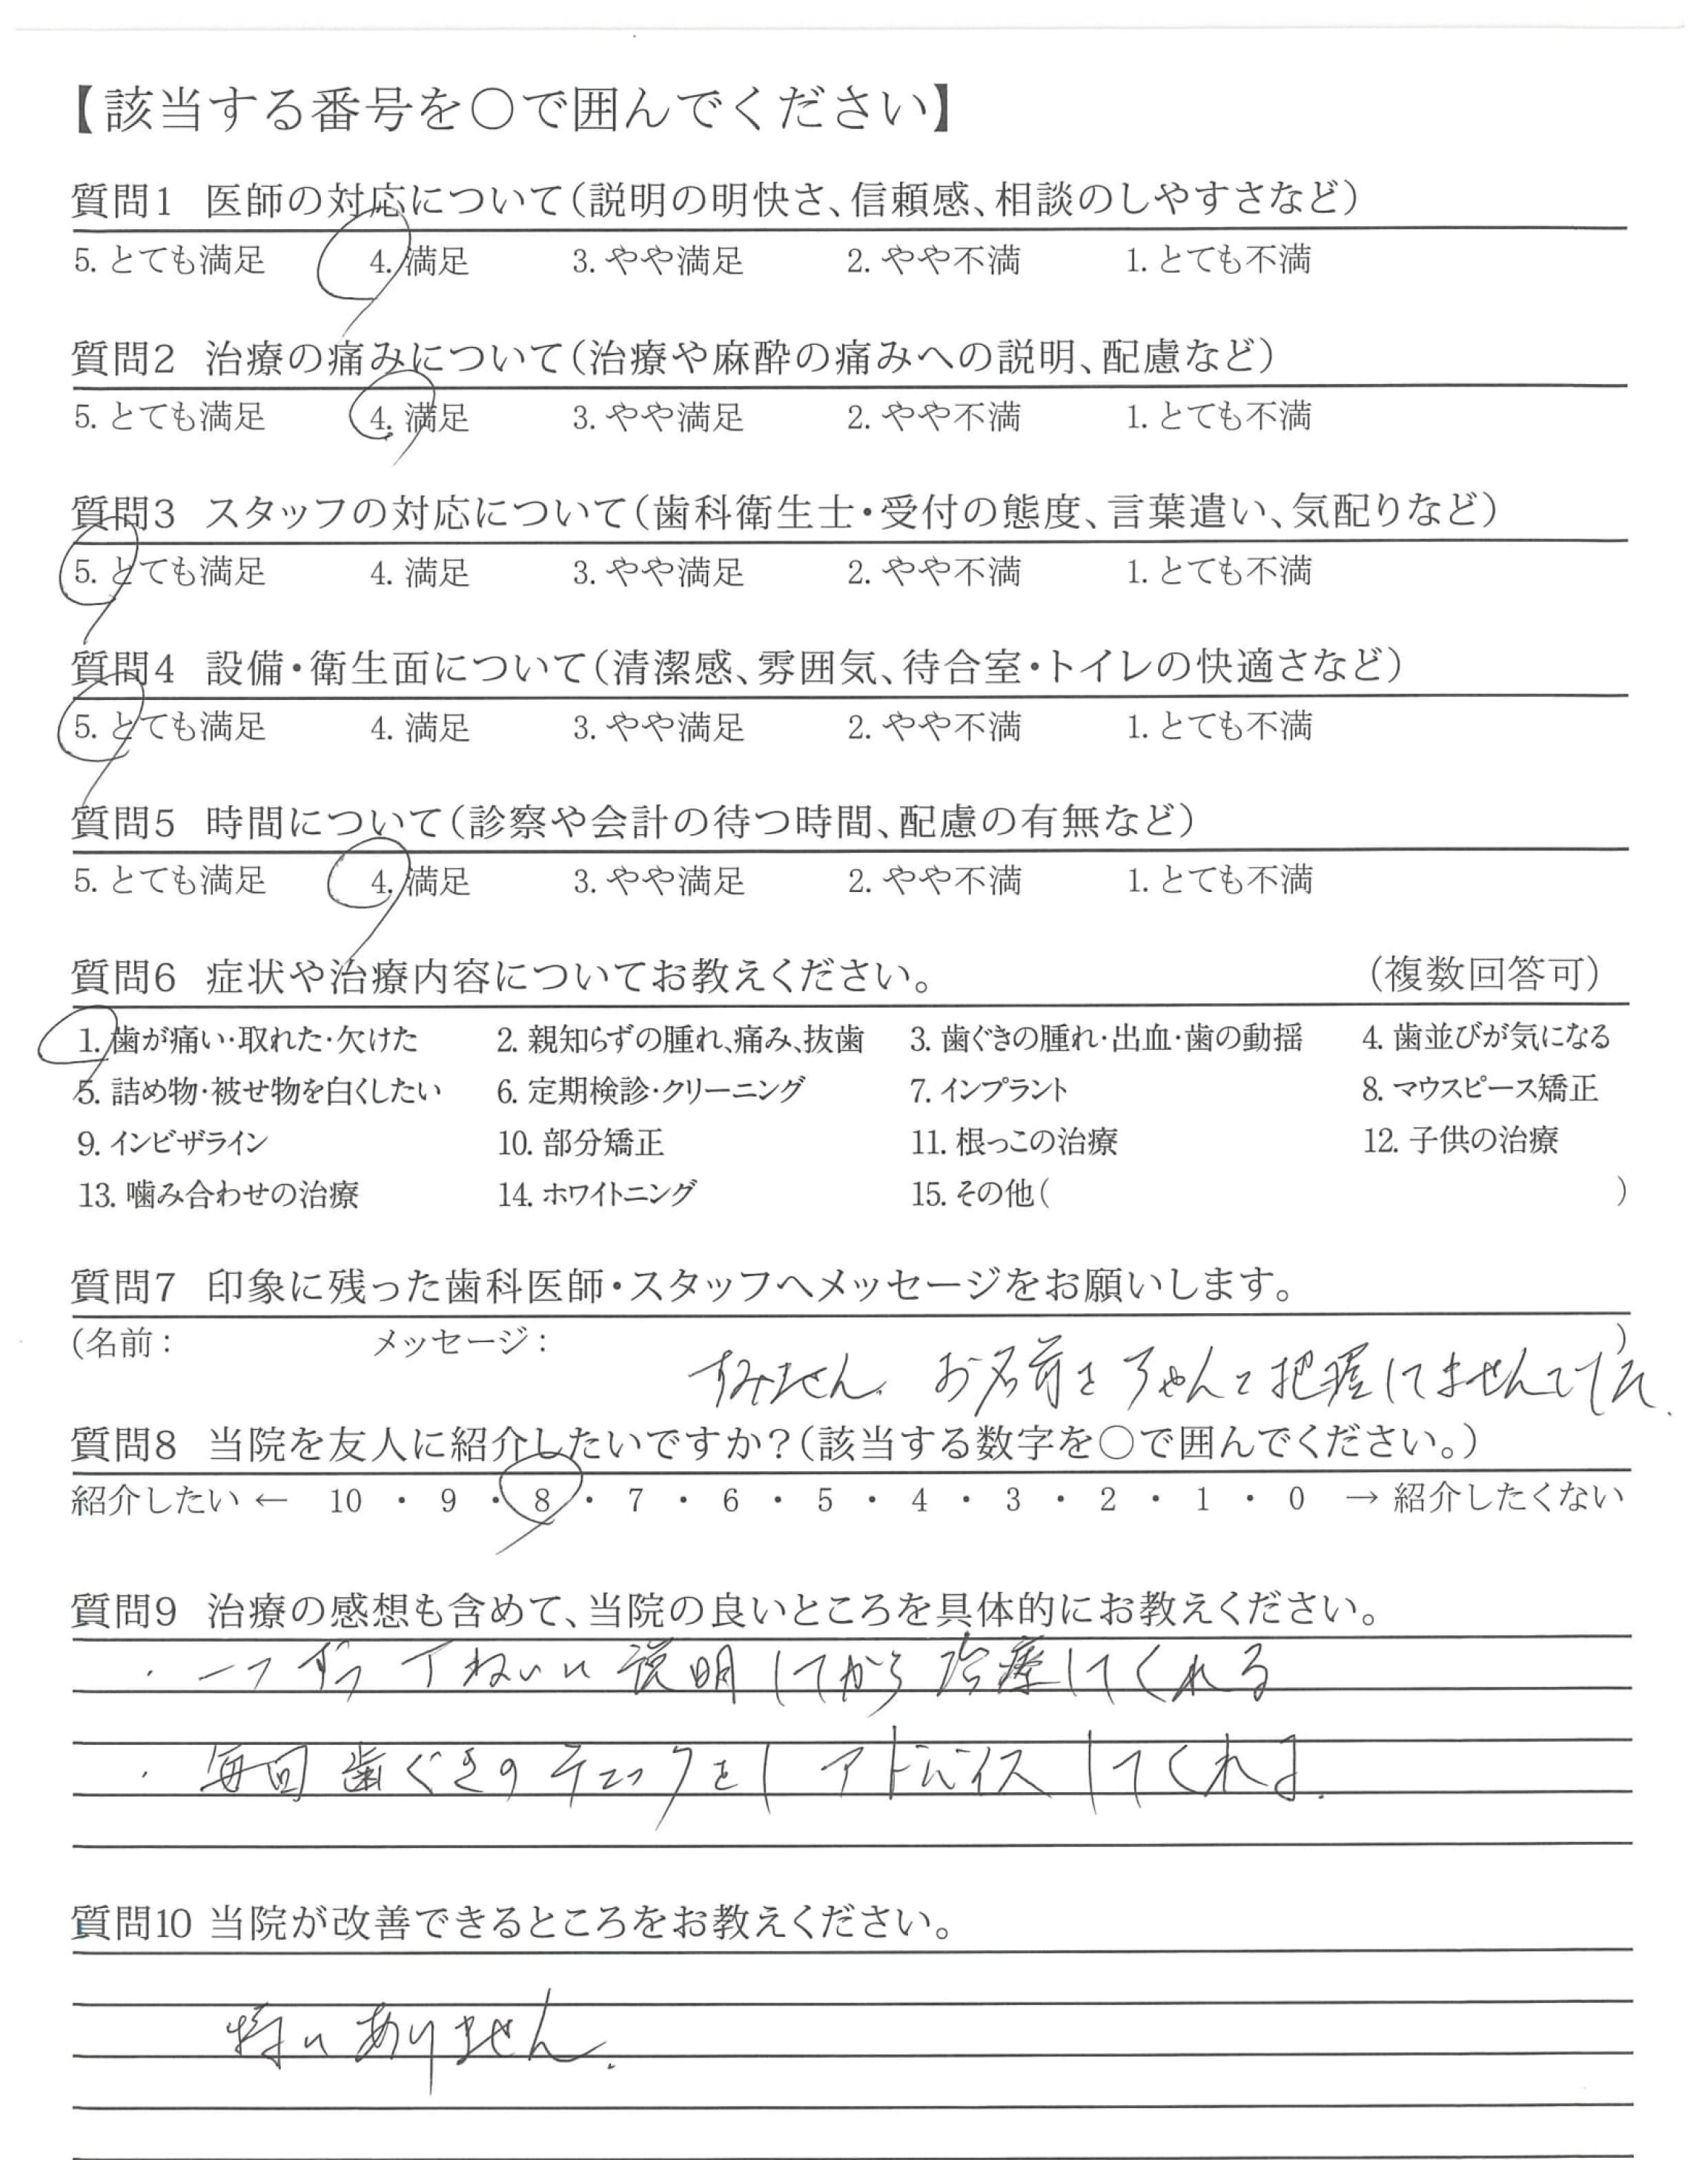 【該当する番号を○で囲んでください】
質問1 医師の対応について(説明の明快さ、信頼感、相談のしやすさなど)
5. とても満足 4. 満足 3. やや満足 2. やや不満 1. とても不満
質問2 治療の痛みについて(治療や麻酔の痛みへの説明、配慮など)
5. とても満足 4. 満足 3. やや満足 2. やや不満 1. とても不満
質問3 スタッフの対応について(歯科衛生士・受付の態度、言葉遣い、気配りなど)
5. とても満足 4. 満足 3. やや満足 2. やや不満 1. とても不満
質問4 設備・衛生面について(清潔感、雰囲気、待合室・トイレの快適さなど)
5. とても満足 4. 満足 3. やや満足 2. やや不満 1. とても不満
質問5 時間について(診察や会計の待つ時間、配慮の有無など)
5. とても満足 4. 満足 3. やや満足 2. やや不満 1. とても不満
質問6 症状や治療内容についてお教えください。 (複数回答可)
1. 歯が痛い・取れた・欠けた 2. 親知らずの腫れ、痛み、抜歯 3. 歯ぐきの腫れ・出血・歯の動揺 4. 歯並びが気になる
5. 詰め物・被せ物を白くしたい 6. 定期検診・クリーニング 7. インプラント 8. マウスピース矯正
9. インビザライン 10. 部分矯正 11. 根っこの治療 12. 子供の治療
13. 噛み合わせの治療 14. ホワイトニング 15. その他( )
質問7 印象に残った歯科医師・スタッフへメッセージをお願いします。
(名前: メッセージ: )
すみません. お名前をちゃんと把握してませんでした.
質問8 当院を友人に紹介したいですか?(該当する数字を○で囲んでください。)
紹介したい ← 10 ・ 9 ・ 8 ・ 7 ・ 6 ・ 5 ・ 4 ・ 3 ・ 2 ・ 1 ・ 0 → 紹介したくない
質問9 治療の感想も含めて、当院の良いところを具体的にお教えください。
・一つずつていねいに説明してから治療してくれる
・毎回歯ぐきのチェックをしアドバイスしてくれる.
質問10 当院が改善できるところをお教えください。
特にありません.